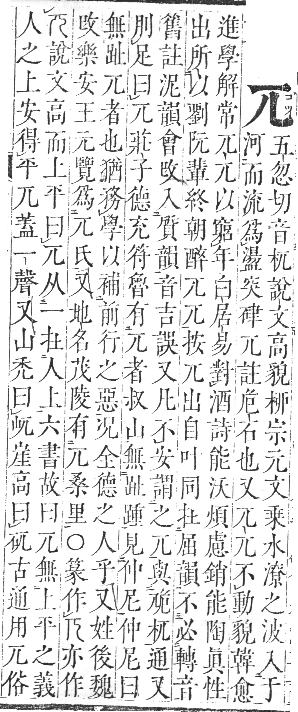 兀
五忽切音杌說文高貌柳宗元文乘水潦之波入于
河而流爲盪突硉兀註危石也又兀兀不動貌韓愈
進學解常兀兀以窮年白居易對酒詩能沃煩慮銷能陶眞性
出所以劉阮輩終朝醉兀兀按兀出自叶同在屈韻不必轉音
舊註泥韻會攺入質韻音古誤又凡不安謂之兀與卼杌通又
刖足曰兀莊子德充符魯有兀者叔山無趾踵見仲尼仲尼曰
無趾兀者也猶務學以補前行之惡況全德之人乎又姓後魏
攺樂安王元覽爲兀氏又地名茂陵有兀桑里○篆作亦作
說文高而上平曰兀从一在人上六書故曰兀無上平之義
人之上安得平兀蓋一聲又山禿曰屼崖高曰矹古通用兀俗